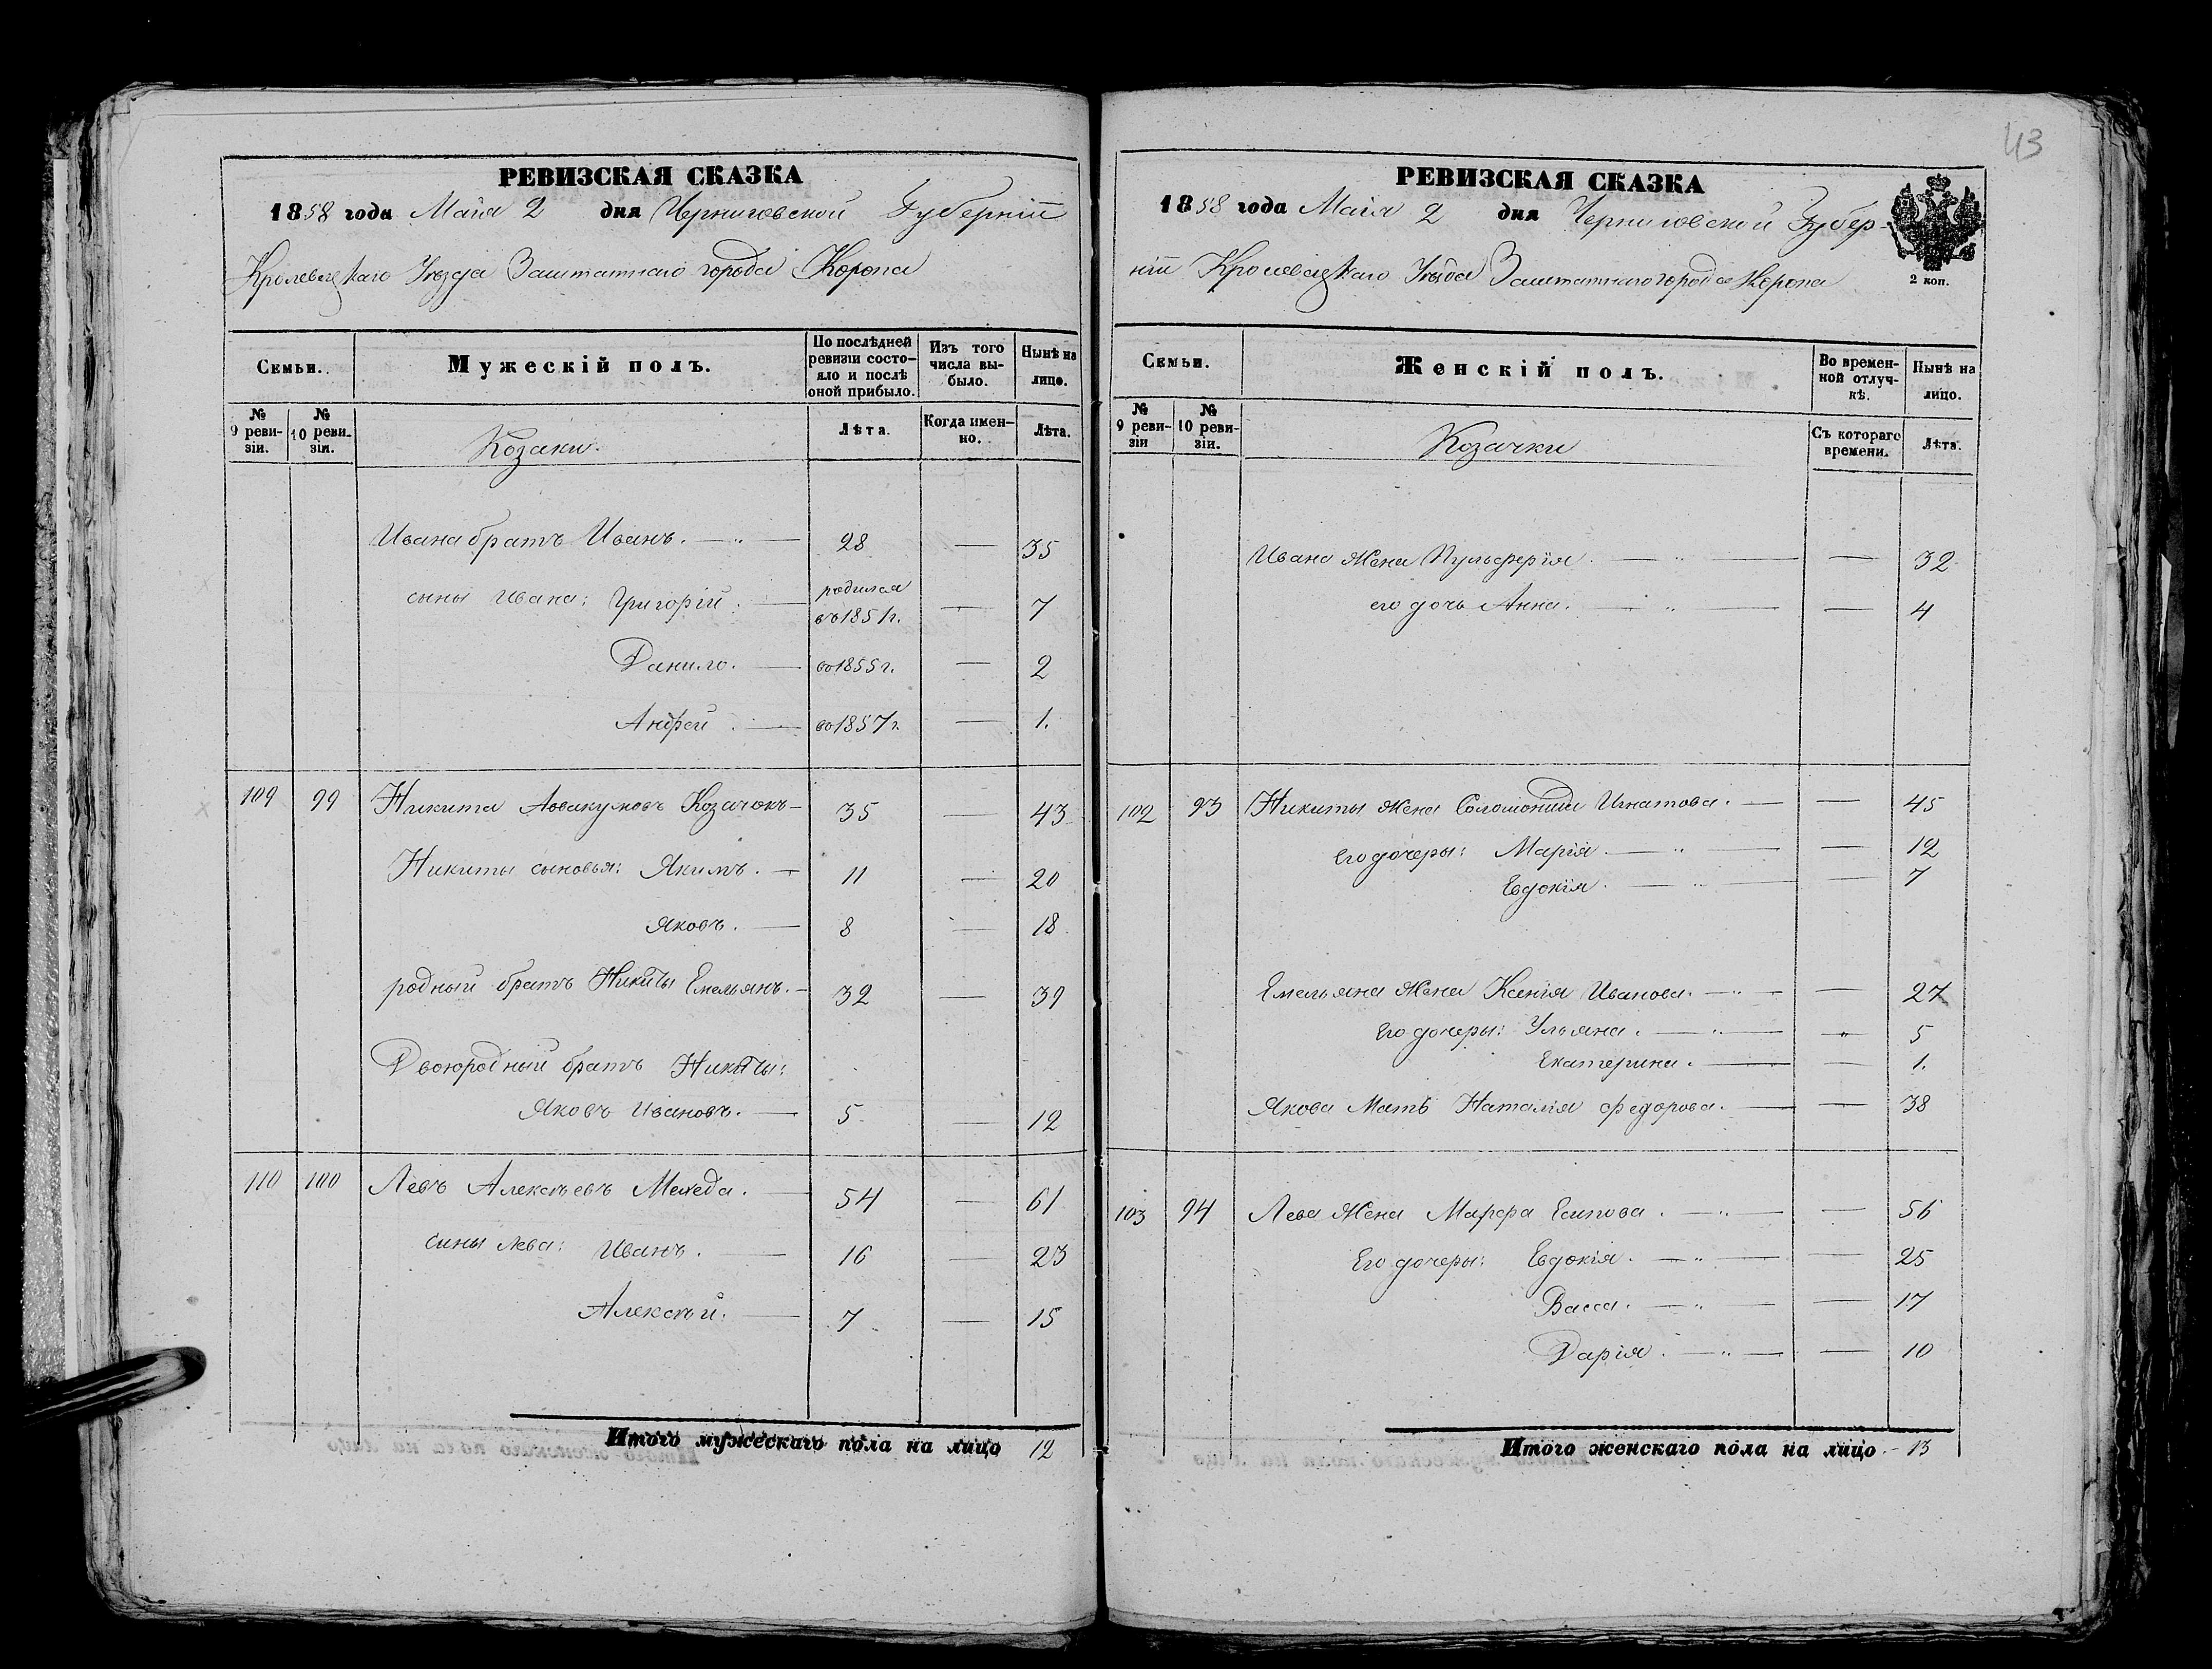 43
РЕВИЗСКАЯ СКАЗКА
1858 года Маія 2 дня Черниговской Губерніи
Кролевецкаго Уѣзда Заштатнаго города Коропа
Семьи.
Мужескій полъ.
По послѣдней ревизіи состояло и послѣ оной прибыло.
Изъ того числа выбыло.
Нынѣ на лицо.
№ 9 ревизіи.
№ 10 ревизіи.
Козаки.
Лѣта.
Когда именно.
Лѣта.
Ивана братъ Иванъ. — 28 — 35
сыны Ивана: Григорій. — родился въ 1851 г. — 7
Данило. — во 1855 г. — 2
Андрей. — во 1857 г. — 1.
109 99 Никита Аввакумовъ Козачокъ — 35 — 43
Никиты сыновья: Якимъ. — 11 — 20
Яковъ. — 8 — 18
родный братъ Никиты Емельянъ. — 32 — 39
Двоюродный братъ Никиты:
Яковъ Ивановъ. — 5 — 12
110 100 Левъ Алексѣевъ Мехеда. — 54 — 61
сыны Лева: Иванъ. — 16 — 23
Алексѣй. — 7 — 15
Итого мужескаго пола на лицо 12
РЕВИЗСКАЯ СКАЗКА
1858 года Маія 2 дня Черниговской Губер-
ніи Кролевецкаго Уѣзда Заштатнаго города Коропа
2 коп.
Семьи.
Женскій полъ.
Во временной отлучкѣ.
Нынѣ на лицо.
№ 9 ревизіи
№ 10 ревизіи.
Козачки
Съ котораго времени.
Лѣта.
Ивана жена Пульферія. — — 32
его дочь Анна. — — 4
102 93 Никиты жена Соломонида Игнатова. — — 45
Его дочеры: Марія — — 12
Евдокія. — — 7
Емельяна жена Ксенія Иванова. — — 27
Его дочеры: Ульяна. — " 5
Екатерина. — — 1.
Якова мать Наталія Федорова. — — 38
103 94 Лева жена Марфа Есипова. — — 56
Его дочеры: Евдокія. — — 25
Васса. — — 17
Дарія. — — 10
Итого женскаго пола на лицо — 13